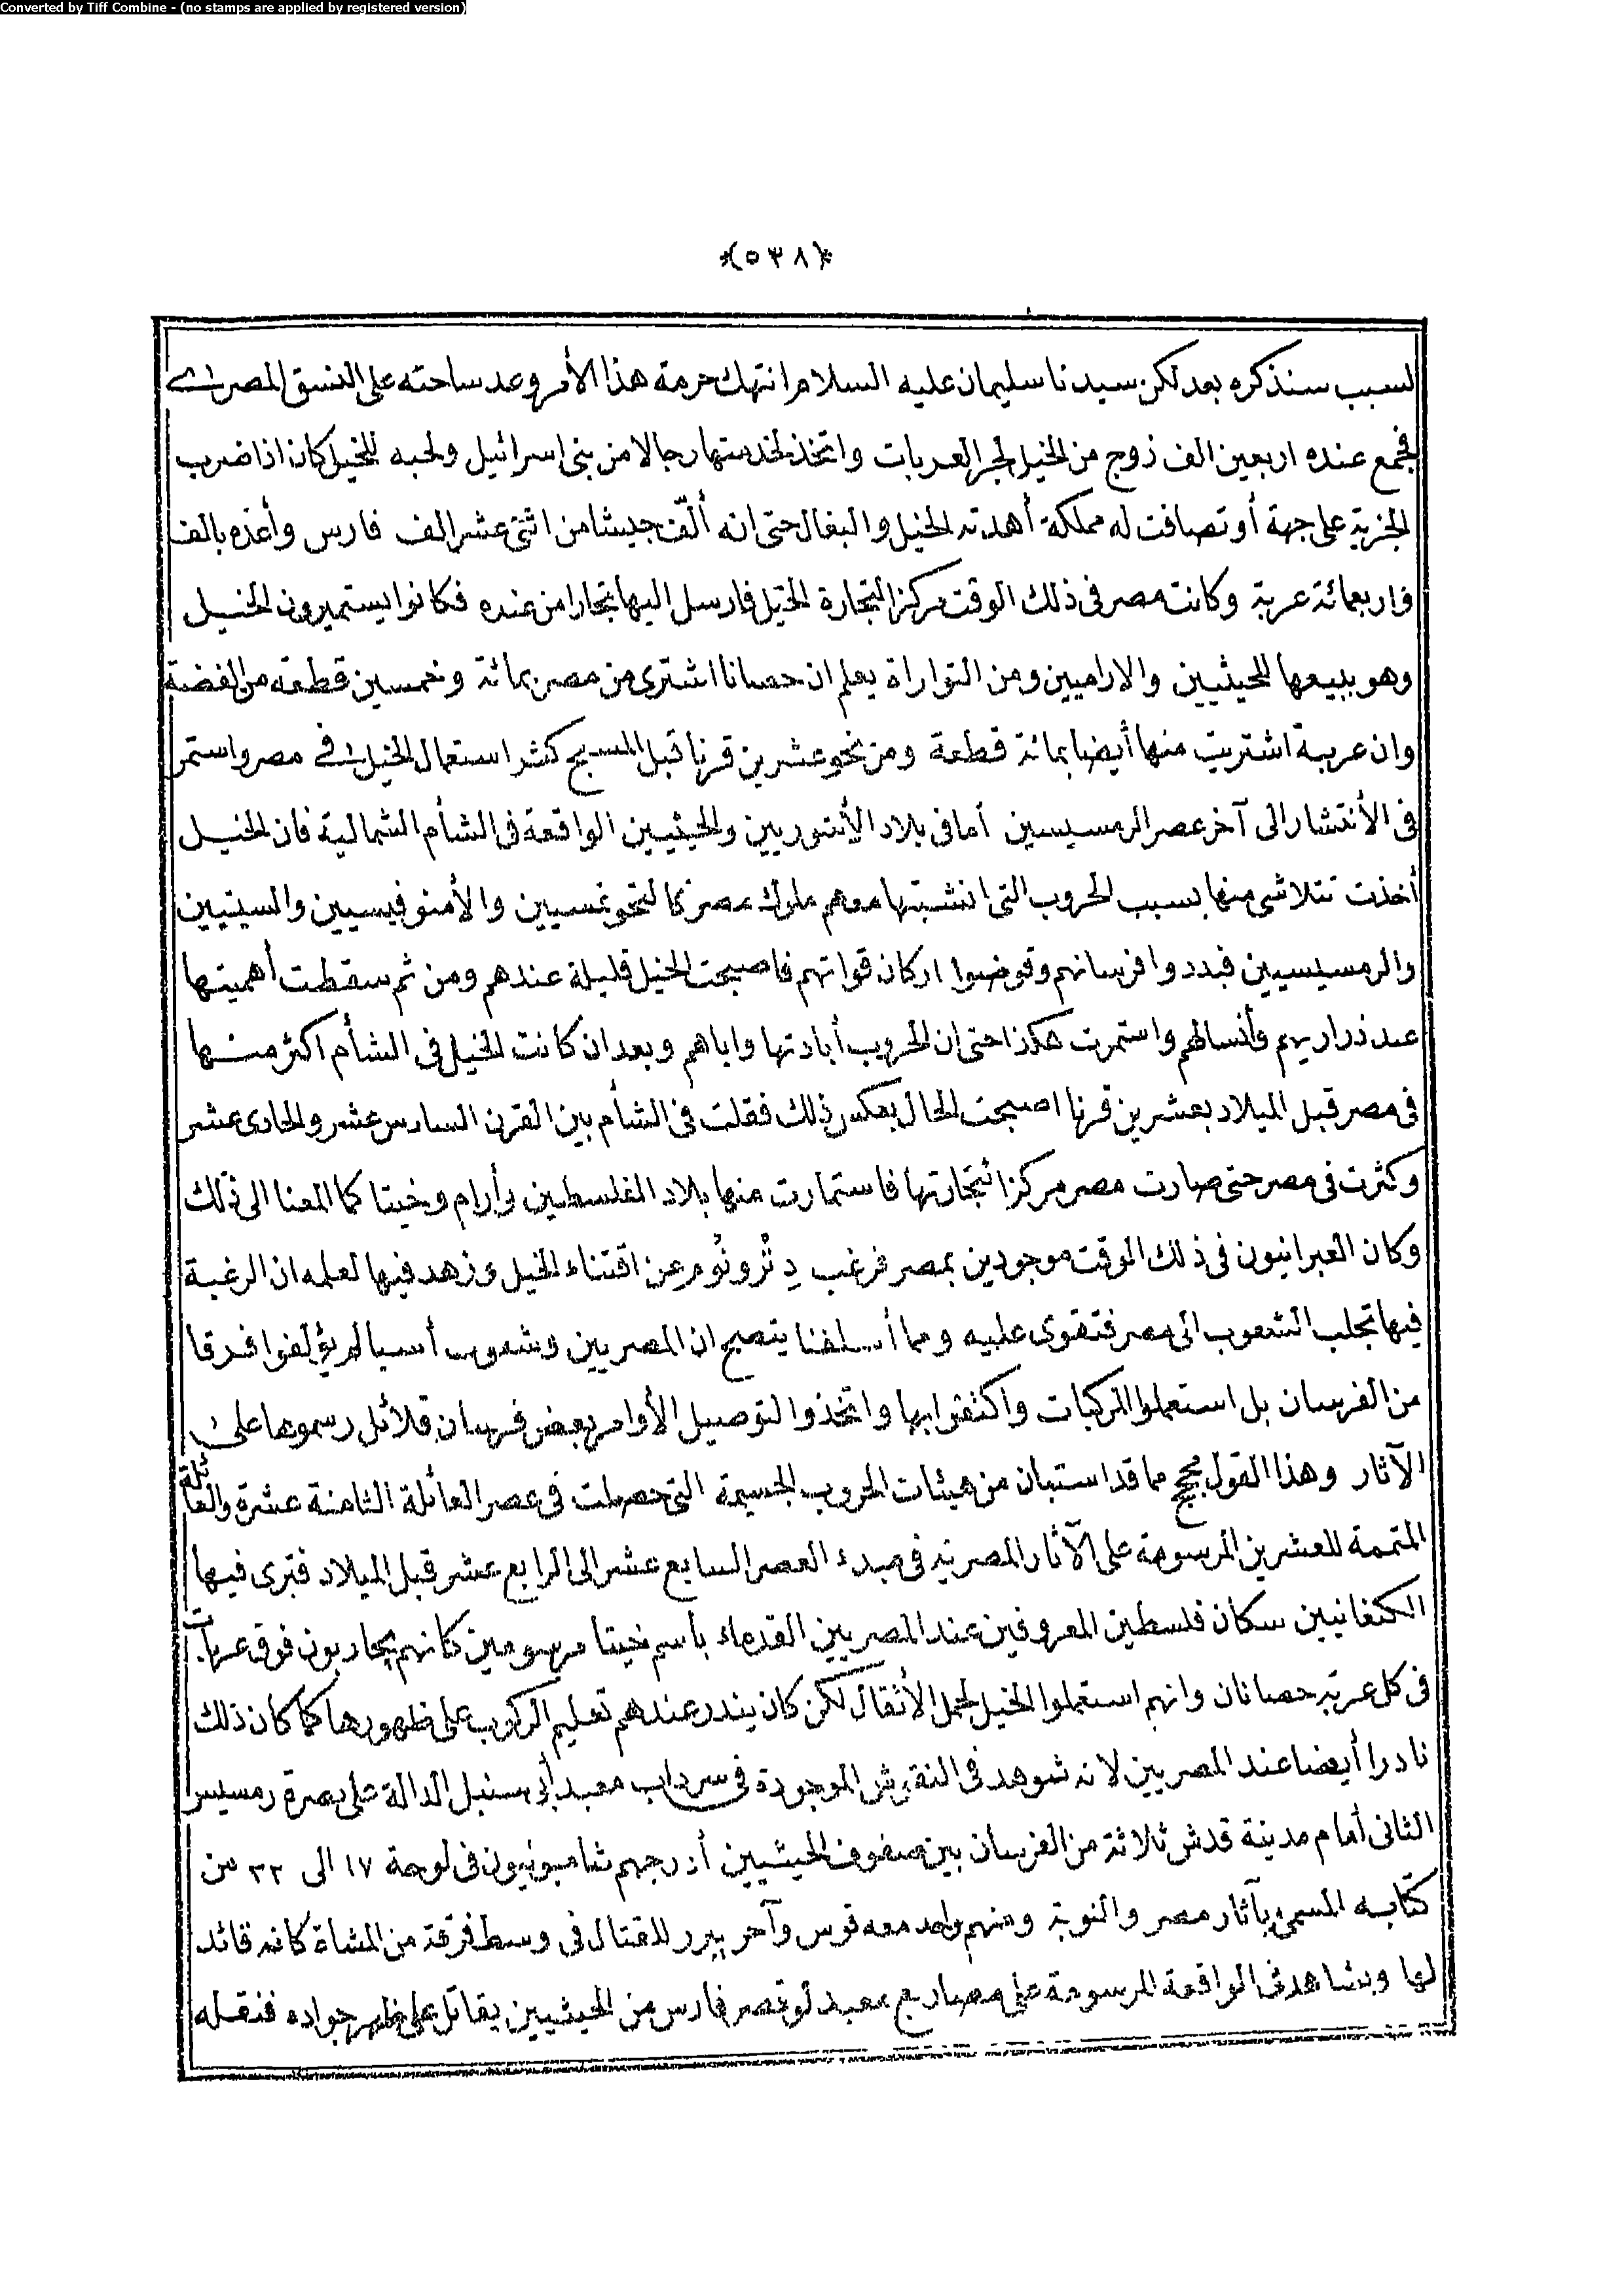 Converted by Tiff Combine - (no stamps are applied by registered version)
*(٥٣٨)*
لسبب سنذكره بعد لكن سيدنا سليمان عليه السلام انتهك حرمة هذا الأمر وعد ساحته على النسق المصرى
فجمع عنده اربعين الف زوج من الخيل لجر العربات واتخذ لخدمتها رجالا من بنى اسرائيل ولحبه للخيل كان اذا ضرب
الجزية على جهة أو تصافت له مملكة أهدته الخيل والبغال حتى انه ألّف جيشا من اثنى عشر الف فارس وأعزه بالف
واربعمائة عربة وكانت مصر فى ذلك الوقت مركز التجارة الخيل فارسل اليها تجارا من عنده فكانوا يستميرون الخيل
وهو يبيعها للحيثيين والاراميين ومن التوراة يعلم ان حصانا اشترى من مصر بمائة وخمسين قطعة من الفضة
وان عربة اشتريت منها أيضا بمائة قطعة ومن نحو عشرين قرنا قبل المسيح كثر استعمال الخيل فى مصر واستمر
فى الأنتشار الى آخر عصر الرمسيسين أما فى بلاد الأشوريين والحيثيين الواقعة فى الشأم الشمالية فان الخيل
أخذت تتلاشى منها بسبب الحروب التى انشبتها معهم ملوك مصر كالتحوتمسيين والأمنوفيسيين والسيتيين
والرمسيسيين فبددوا فرسانهم وقوضوا اركان قواتهم فاصبحت الخيل قليلة عندهم ومن ثم سقطت أهميتها
عند ذراريهم وأنسالهم واستمرت هكذا حتى ان الحروب أبادتها واياهم وبعد ان كانت الخيل فى الشأم اكثر منها
فى مصر قبل الميلاد بعشرين قرنا اصبحت الحال بعكس ذلك فقلت فى الشأم بين القرن السادس عشر والحادى عشر
وكثرت فى مصر حتى صارت مصر مركزا لتجارتها فاستمارت منها بلاد الفلسطين وأرام وخيتا كما المعنا الى ذلك
وكان العبرانيون فى ذلك الوقت موجودين بمصر فرغب دِثْرونُوم عن اقتناء الخيل وزهد فيها لعلمه ان الرغبة
فيها تجلب الشعوب الى مصر فتقوى عليه ومما أسلفنا يتضح ان المصريين وشعوب أسيا لم يؤلفوا فرقا
من الفرسان بل استعملوا المركبات واكتفوا بها واتخذوا لتوصيل الأوامر بعض فرسان قلائل رسموها على
الآثار وهذا القول صحيح مما قد استبان من هيئات الحروب الجسيمة التى حصلت فى عصر العائلة الثامنة عشرة والعائلة
المتممة للعشرين المرسومة على الآثار المصرية فى مبدء العصر السابع عشر الى الرابع عشر قبل الميلاد فترى فيها
الكنعانيين سكان فلسطين المعروفين عند المصريين القدماء باسم خيتا مرسومين كانهم يحاربون فوق عربات
فى كل عربة حصانان وانهم استعملوا الخيل لحمل الأثقال لكن كان يندر عندهم تعليم الركوب على ظهورها كما كان ذلك
نادرا أيضا عند المصريين لانه شوهد فى النقوش الموجودة فى سرداب معبد أبى سنبل الدالة على نصرة رمسيس
الثانى أمام مدينة قدش ثلاثة من الفرسان بين صفوف الحيثيين أدرجهم شامبونيون فى لوحة ١٧ الى ٣٢ من
كتابه المسمى بآثار مصر والنوبة ومنهم واحد معه قوس وآخر يبرز للقتال فى وسط فرقة من المشاة كانه قائد
لها ويشاهد فى الواقعة المرسومة على مصاريع معبد لوقصر فارس من الحيثيين يقاتل على ظهر جواده فنقله